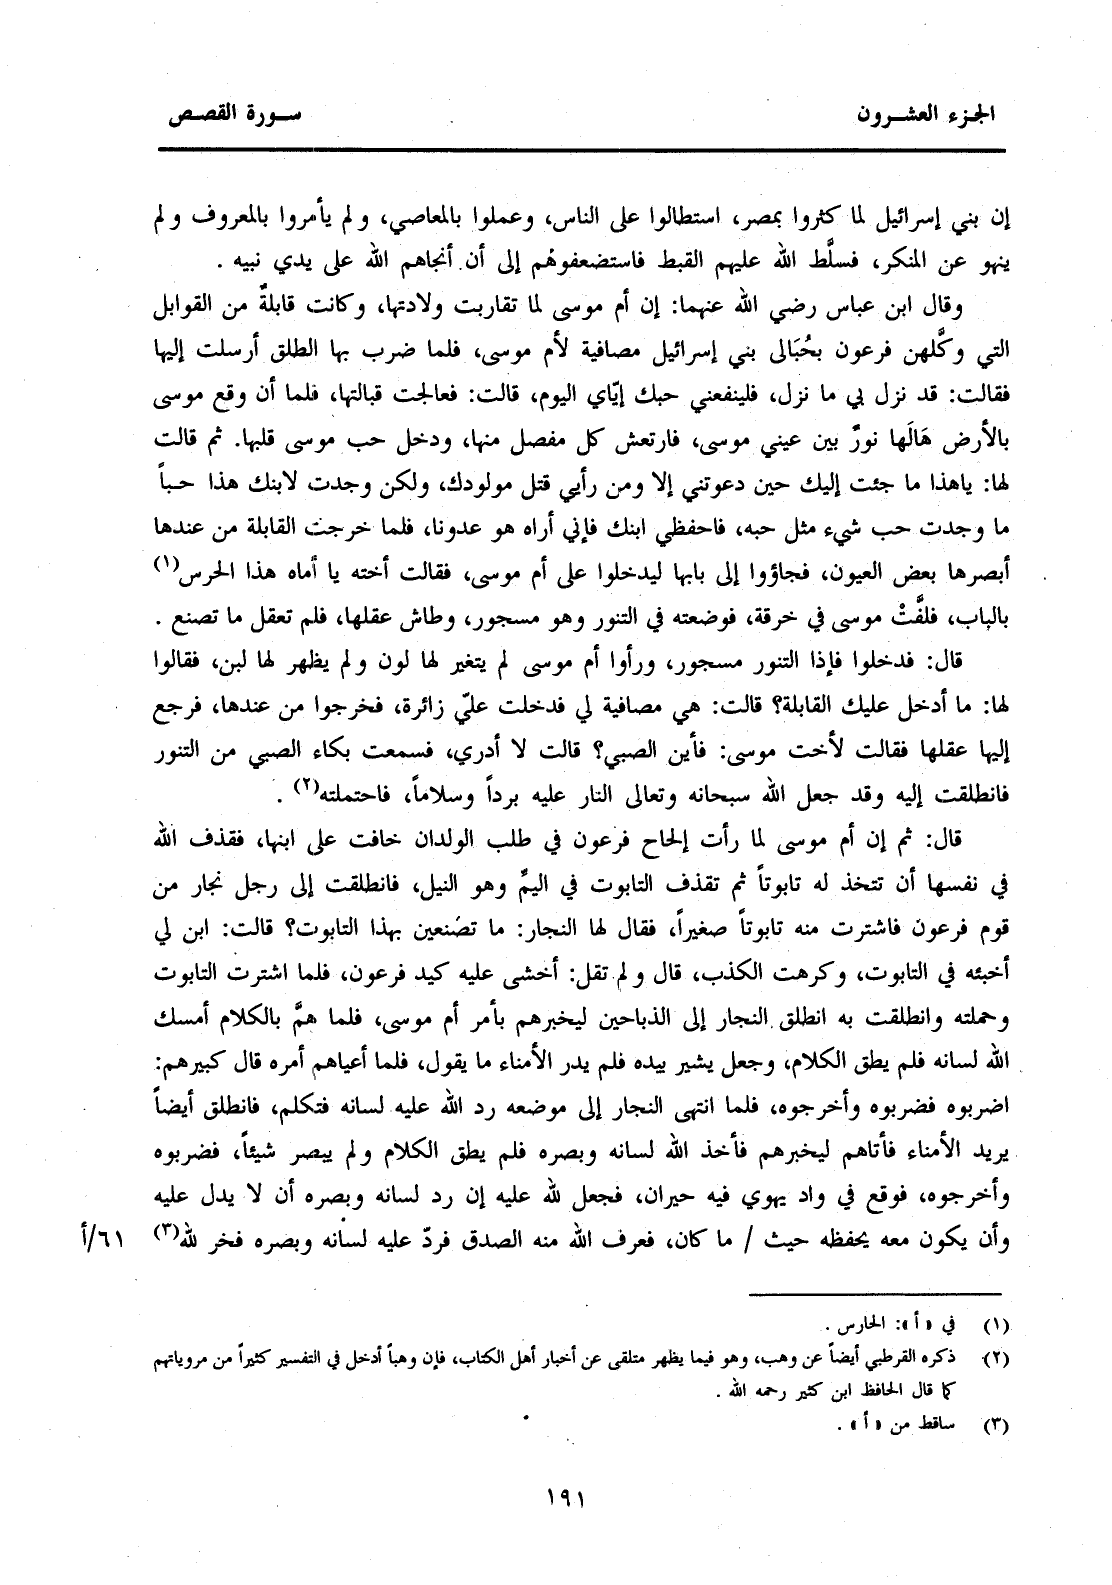 الجزء العشرون
سورة القصص
إن بني إسرائيل لما كثروا بمصر، استطالوا على الناس، وعملوا بالمعاصي، ولم يأمروا بالمعروف ولم
ينهو عن المنكر، فسلَّط الله عليهم القبط فاستضعفوهُم إلى أن أنجاهم الله على يدي نبيه .
وقال ابن عباس رضي الله عنهما: إن أم موسى لما تقاربت ولادتها، وكانت قابلةٌ من القوابل
التي وكَّلهن فرعون بحُبَالى بني إسرائيل مصافية لأم موسى، فلما ضرب بها الطلق أرسلت إليها
فقالت: قد نزل بي ما نزل، فلينفعني حبك إيّاي اليوم، قالت: فعالجت قبالتها، فلما أن وقع موسى
بالأرض هَالَها نورٌ بين عيني موسى، فارتعش كل مفصل منها، ودخل حب موسى قلبها. ثم قالت
لها: ياهذا ما جئت إليك حين دعوتني إلا ومن رأيي قتل مولودك، ولكن وجدت لابنك هذا حباً
ما وجدت حب شيء مثل حبه، فاحفظي ابنك فإني أراه هو عدونا، فلما خرجت القابلة من عندها
أبصرها بعض العيون، فجاؤوا إلى بابها ليدخلوا على أم موسى، فقالت أخته يا أماه هذا الحرس(١)
بالباب، فلفَّتْ موسى في خرقة، فوضعته في التنور وهو مسجور، وطاش عقلها، فلم تعقل ما تصنع .
قال: فدخلوا فإذا التنور مسجور، ورأوا أم موسى لم يتغير لها لون ولم يظهر لها لبن، فقالوا
لها: ما أدخل عليك القابلة؟ قالت: هي مصافية لي فدخلت عليّ زائرة، فخرجوا من عندها، فرجع
إليها عقلها فقالت لأخت موسى: فأين الصبي؟ قالت لا أدري، فسمعت بكاء الصبي من التنور
فانطلقت إليه وقد جعل الله سبحانه وتعالى النار عليه برداً وسلاماً، فاحتملته(٢) .
قال: ثم إن أم موسى لما رأت إلحاح فرعون في طلب الولدان خافت على ابنها، فقذف الله
في نفسها أن تتخذ له تابوتاً ثم تقذف التابوت في اليمِّ وهو النيل، فانطلقت إلى رجل نجار من
قوم فرعون فاشترت منه تابوتاً صغيراً، فقال لها النجار: ما تصنعين بهذا التابوت؟ قالت: ابن لي
أخبئه في التابوت، وكرهت الكذب، قال ولم تقل: أخشى عليه كيد فرعون، فلما اشترت التابوت
وحملته وانطلقت به انطلق النجار إلى الذباحين ليخبرهم بأمر أم موسى، فلما همَّ بالكلام أمسك
الله لسانه فلم يطق الكلام، وجعل يشير بيده فلم يدر الأمناء ما يقول، فلما أعياهم أمره قال كبيرهم:
اضربوه فضربوه وأخرجوه، فلما انتهى النجار إلى موضعه رد الله عليه لسانه فتكلم، فانطلق أيضاً
يريد الأمناء فأتاهم ليخبرهم فأخذ الله لسانه وبصره فلم يطق الكلام ولم يبصر شيئاً، فضربوه
وأخرجوه، فوقع في واد يهوي فيه حيران، فجعل لله عليه إن رد لسانه وبصره أن لا يدل عليه
وأن يكون معه يحفظه حيث / ما كان، فعرف الله منه الصدق فردّ عليه لسانه وبصره فخر لله(٣)
٦١/أ
(١) في «أ»: الحارس .
(٢) ذكره القرطبي أيضاً عن وهب، وهو فيما يظهر متلقى عن أخبار أهل الكتاب، فإن وهباً أدخل في التفسير كثيراً من مروياتهم
كما قال الحافظ ابن كثير رحمه الله .
(٣) ساقط من «أ» .
١٩١